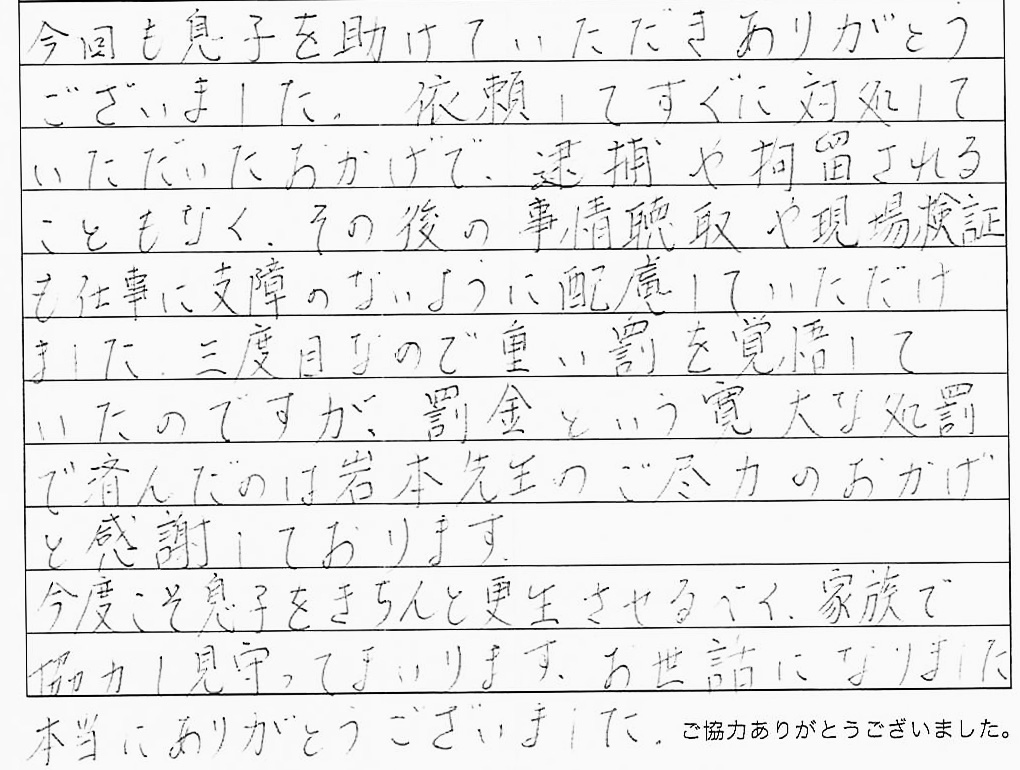 今回も息子を助けていただきありがとう
ございました。依頼してすぐに対処して
いただいたおかげで、逮捕や拘留される
こともなく、その後の事情聴取や現場検証
も仕事に支障のないように配慮していただけ
ました。三度目なので重い罰を覚悟して
いたのですが、罰金という寛大な処罰
で済んだのは岩本先生のご尽力のおかげ
と感謝しております。
今度こそ息子をきちんと更生させるべく、家族で
協力し見守ってまいります。お世話になりました
本当にありがとうございました。
ご協力ありがとうございました。